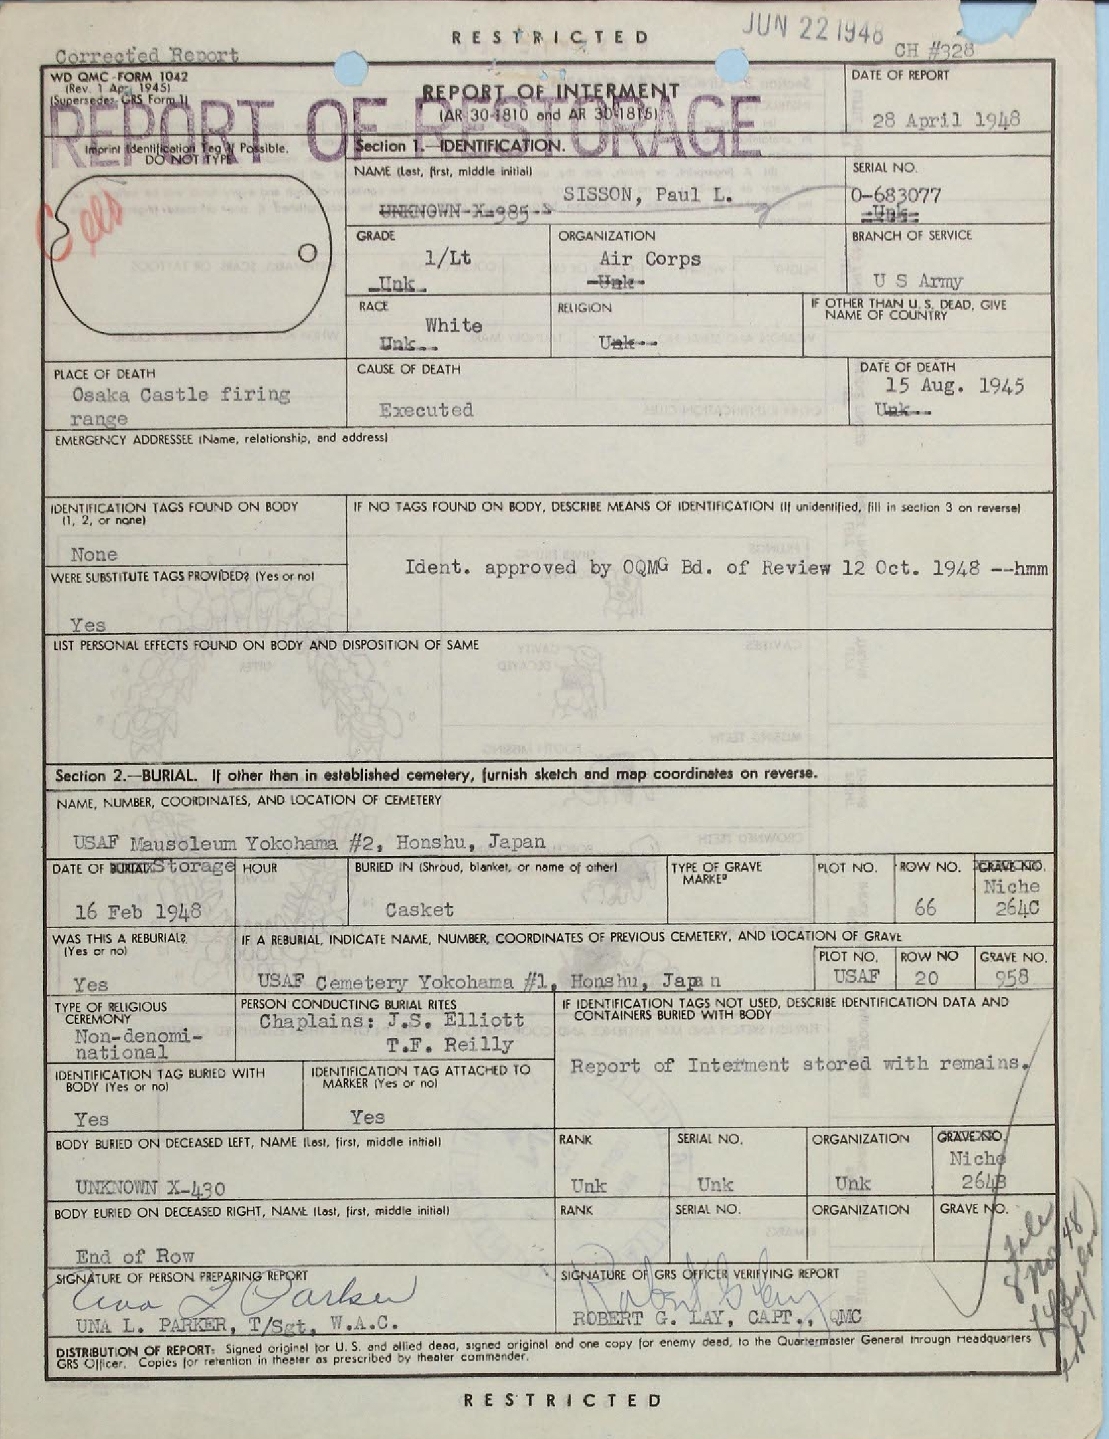 RESTRICTED
JUN 22 1948
Corrected Report
CH #328
WD QMC FORM 1042
(Rev. 1 Apr. 1945)
(Supersedes GRS Form 1)
REPORT OF INTERMENT
(AR 30-1810 and AR 30-1815)
REPORT OF RESTORAGE
DATE OF REPORT
28 April 1948
Imprint Identification Tag If Possible.
DO NOT TYPE
Section 1.—IDENTIFICATION.
NAME (Last, first, middle initial)
SISSON, Paul L.
UNKNOWN X-985
SERIAL NO.
O-683077
Unk
GRADE
1/Lt
Unk
ORGANIZATION
Air Corps
Unk
BRANCH OF SERVICE
U S Army
RACE
White
Unk
RELIGION
Unk
IF OTHER THAN U. S. DEAD, GIVE
NAME OF COUNTRY
PLACE OF DEATH
Osaka Castle firing
range
CAUSE OF DEATH
Executed
DATE OF DEATH
15 Aug. 1945
Unk
EMERGENCY ADDRESSEE (Name, relationship, and address)
IDENTIFICATION TAGS FOUND ON BODY
(1, 2, or none)
None
IF NO TAGS FOUND ON BODY, DESCRIBE MEANS OF IDENTIFICATION (If unidentified, fill in section 3 on reverse)
Ident. approved by OQMG Bd. of Review 12 Oct. 1948 --hmm
WERE SUBSTITUTE TAGS PROVIDED? (Yes or no)
Yes
LIST PERSONAL EFFECTS FOUND ON BODY AND DISPOSITION OF SAME
Section 2.—BURIAL. If other than in established cemetery, furnish sketch and map coordinates on reverse.
NAME, NUMBER, COORDINATES, AND LOCATION OF CEMETERY
USAF Mausoleum Yokohama #2, Honshu, Japan
DATE OF BURIAL Storage
16 Feb 1948
HOUR
BURIED IN (Shroud, blanket, or name of other)
Casket
TYPE OF GRAVE
MARKER
PLOT NO.
ROW NO.
66
GRAVE NO.
Niche
264C
WAS THIS A REBURIAL?
(Yes or no)
Yes
IF A REBURIAL, INDICATE NAME, NUMBER, COORDINATES OF PREVIOUS CEMETERY, AND LOCATION OF GRAVE
USAF Cemetery Yokohama #1, Honshu, Japan
PLOT NO.
USAF
ROW NO
20
GRAVE NO.
958
TYPE OF RELIGIOUS
CEREMONY
Non-denomi-
national
PERSON CONDUCTING BURIAL RITES
Chaplains: J.S. Elliott
T.F. Reilly
IF IDENTIFICATION TAGS NOT USED, DESCRIBE IDENTIFICATION DATA AND
CONTAINERS BURIED WITH BODY
Report of Interment stored with remains.
IDENTIFICATION TAG BURIED WITH
BODY (Yes or no)
Yes
IDENTIFICATION TAG ATTACHED TO
MARKER (Yes or no)
Yes
BODY BURIED ON DECEASED LEFT, NAME (Last, first, middle initial)
UNKNOWN X-430
RANK
Unk
SERIAL NO.
Unk
ORGANIZATION
Unk
GRAVE NO.
Niche
264B
BODY BURIED ON DECEASED RIGHT, NAME (Last, first, middle initial)
End of Row
RANK
SERIAL NO.
ORGANIZATION
GRAVE NO.
SIGNATURE OF PERSON PREPARING REPORT
Una L Parker
UNA L. PARKER, T/Sgt, W.A.C.
SIGNATURE OF GRS OFFICER VERIFYING REPORT
Robert G Lay
ROBERT G. LAY, CAPT., QMC
File
8 Nov 48
DISTRIBUTION OF REPORT: Signed original for U. S. and allied dead, signed original and one copy for enemy dead, to the Quartermaster General through Headquarters
GRS Officer. Copies for retention in theater as prescribed by theater commander.
RESTRICTED